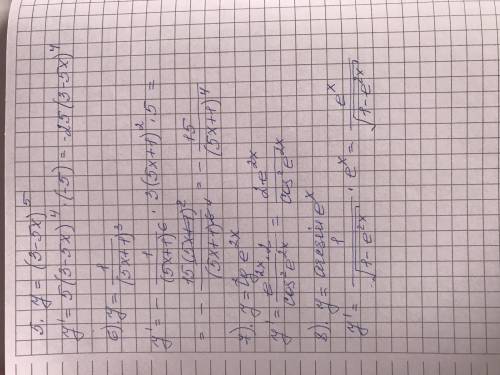 5. y = (3-5x)^5
y' = 5(3-5x)^4 · (-5) = -25(3-5x)^4
6). y = 1/(5x+1)^3
y' = - 1/(5x+1)^6 · 3(5x+1)^2 · 5 =
= - 15(5x+1)^2/(5x+1)^6 4 = - 15/(5x+1)^4
7). y = tg e^2x
y' = e^2x · 2/cos² e^2x = 2e^2x/cos² e^2x
8). y = arcsin e^x
y' = 1/√(1-e^2x) · e^x = e^x/√(1-e^2x)